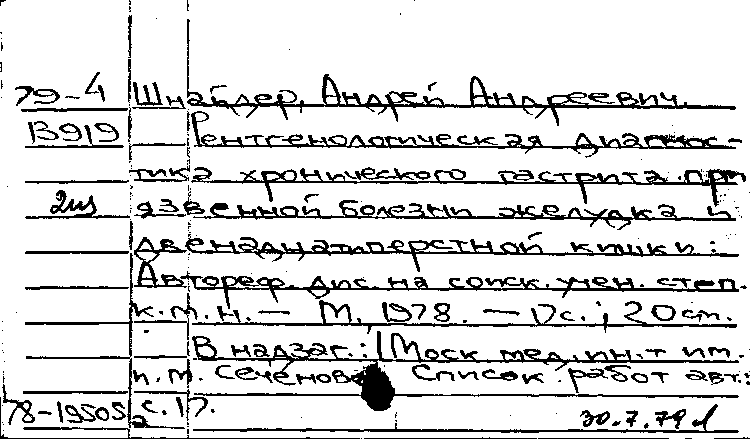 79-4 Шнайдер, Андрей Андреевич.
В919 Рентгенологическая диагнос-
тика хронического гастрита при
2из язвенной болезни желудка и
двенадцатиперстной кишки:
Автореф. дис. на соиск. учен. степ.
к.м.н. — М, 1978. — 17с.; 20см.
В надзаг.: 1 Моск мед. ин-т им.
И.М. Сеченова Список работ авт.:
78-19505 с. 17.
30.7.79